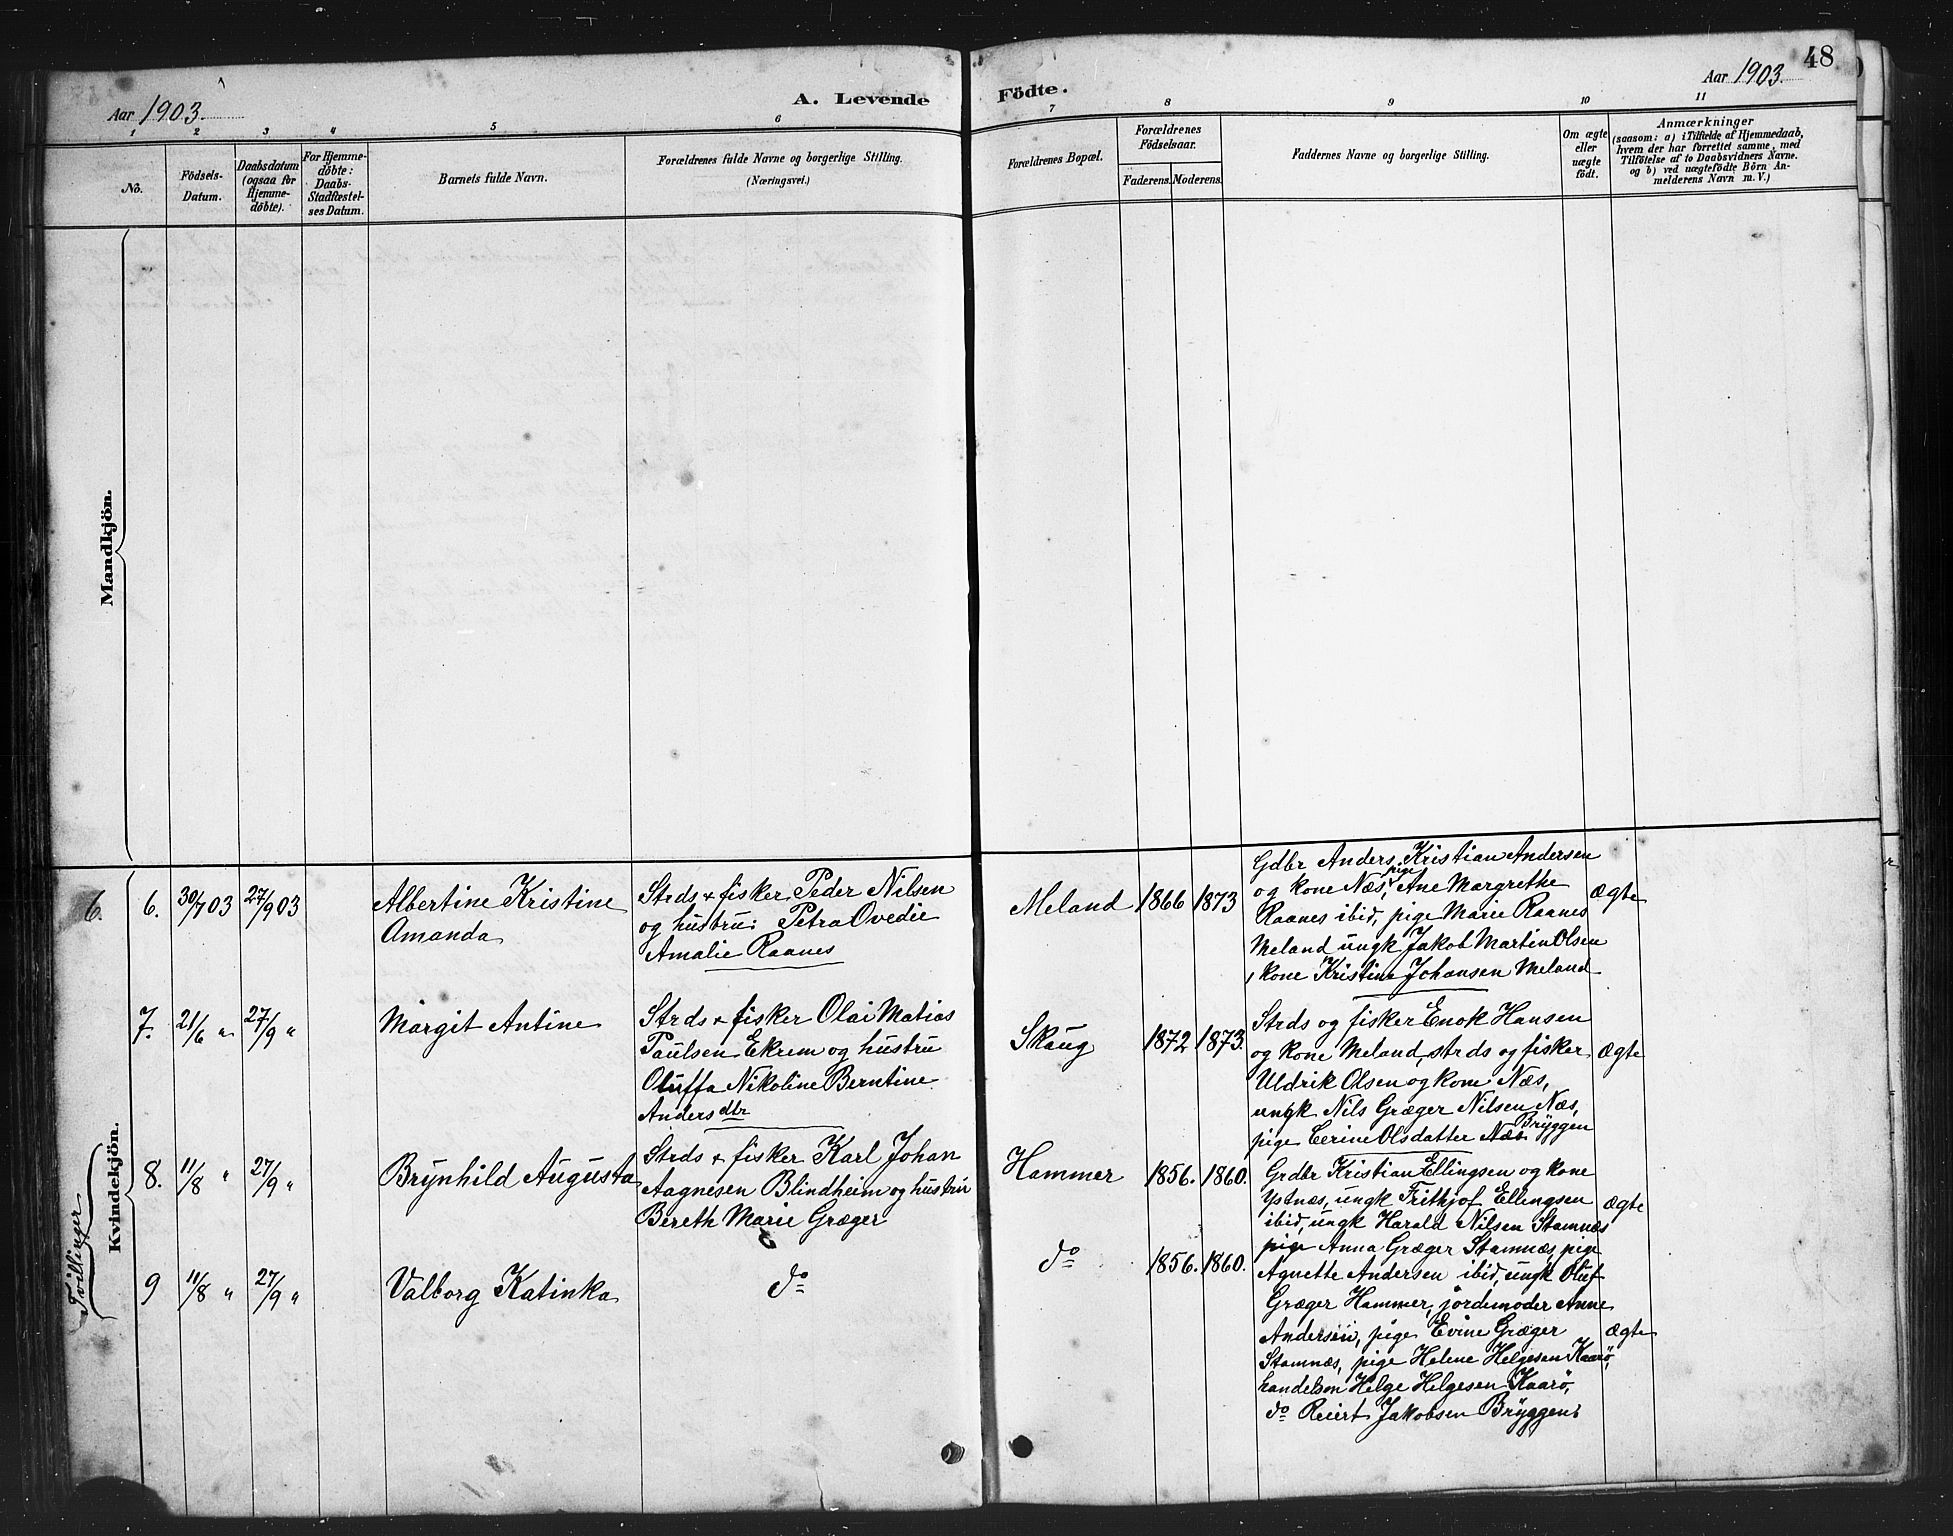 48
Aar 1903.
A. Levende
Födte.
Aar 1903.
1
2
3
4
5
6
7
8
9
10
11
No.
Födsels-
Datum.
Daabsdatum
(ogsaa for
Hjemme-
döbte).
For Hjemme-
döbte:
Daabs-
Stadfæstel-
ses Datum.
Barnets fulde Navn.
Forældrenes fulde Navne og borgerlige Stilling.
(Næringsvei.)
Forældrenes Bopæl.
Forældrenes
Födselsaar.
Faderens. Moderens.
Faddernes Navne og borgerlige Stilling.
Om ægte
eller
uægte
födt.
Anmærkninger
(saasom: a) i Tilfælde af Hjemmedaab,
hvem der har forrettet samme, med
Tilföielse af to Daabsvidners Navne.
og b) ved uægtefödte Börn An-
melderens Navn m. V.)
Mandkjön.
Kvindekjön.
6.
6.
30/7 03
27/9 03
Albertine Kristine
Amanda
Strds + fisker Peder Nilsen
og hustru: Petra Ovedie
Amalie Raanes
Meland
1866
1873
Gdbr Anders Kristian Andersen
og kone Næs, pige Ane Margrethe
Raanes ibid, pige Marie Raanes
Meland ungk Jakob Martin Olsen
, kone Kristine Johansen Meland
ægte
7.
21/6 "
27/9 "
Margit Antine
Strds + fisker Olai Matias
Paulsen Ekrem og hustru
Oluffa Nikoline Berntine
Andersdbr
Skaug
1872
1873.
Strds og fisker Enok Hansen
og kone Meland, strds og fisker
Uldrik Olsen og kone Næs,
ungk Nils Græger Nilsen Næs,
pige Cerine Olsdatter Næs Bryggen
ægte
Tvillinger
8.
11/8 "
27/9 "
Brynhild Augusta
Strds + fisker Karl Johan
Aagnesen Blindheim og hustru
Bereth Marie Græger
Hammer
1856.
1860.
Grdbr Kristian Ellingsen og kone
Ystnæs, ungk Frithjof Ellingsen
ibid, ungk Harald Nilsen Stamnæs
pige Anna Græger Stamnæs, pige
Agnette Andersen ibid, ungk Oluf
Græger Hammer, jordemoder Anne
Andersen, pige Evine Græger
Stamnæs, pige Helene Helgesen Kaarö,
handelsm Helge Helgesen Kaarö,
do Reiert Jakobsen Bryggen.
ægte
9
11/8 "
27/9 "
Valborg Katinka
do
do
1856.
1860.
ægte